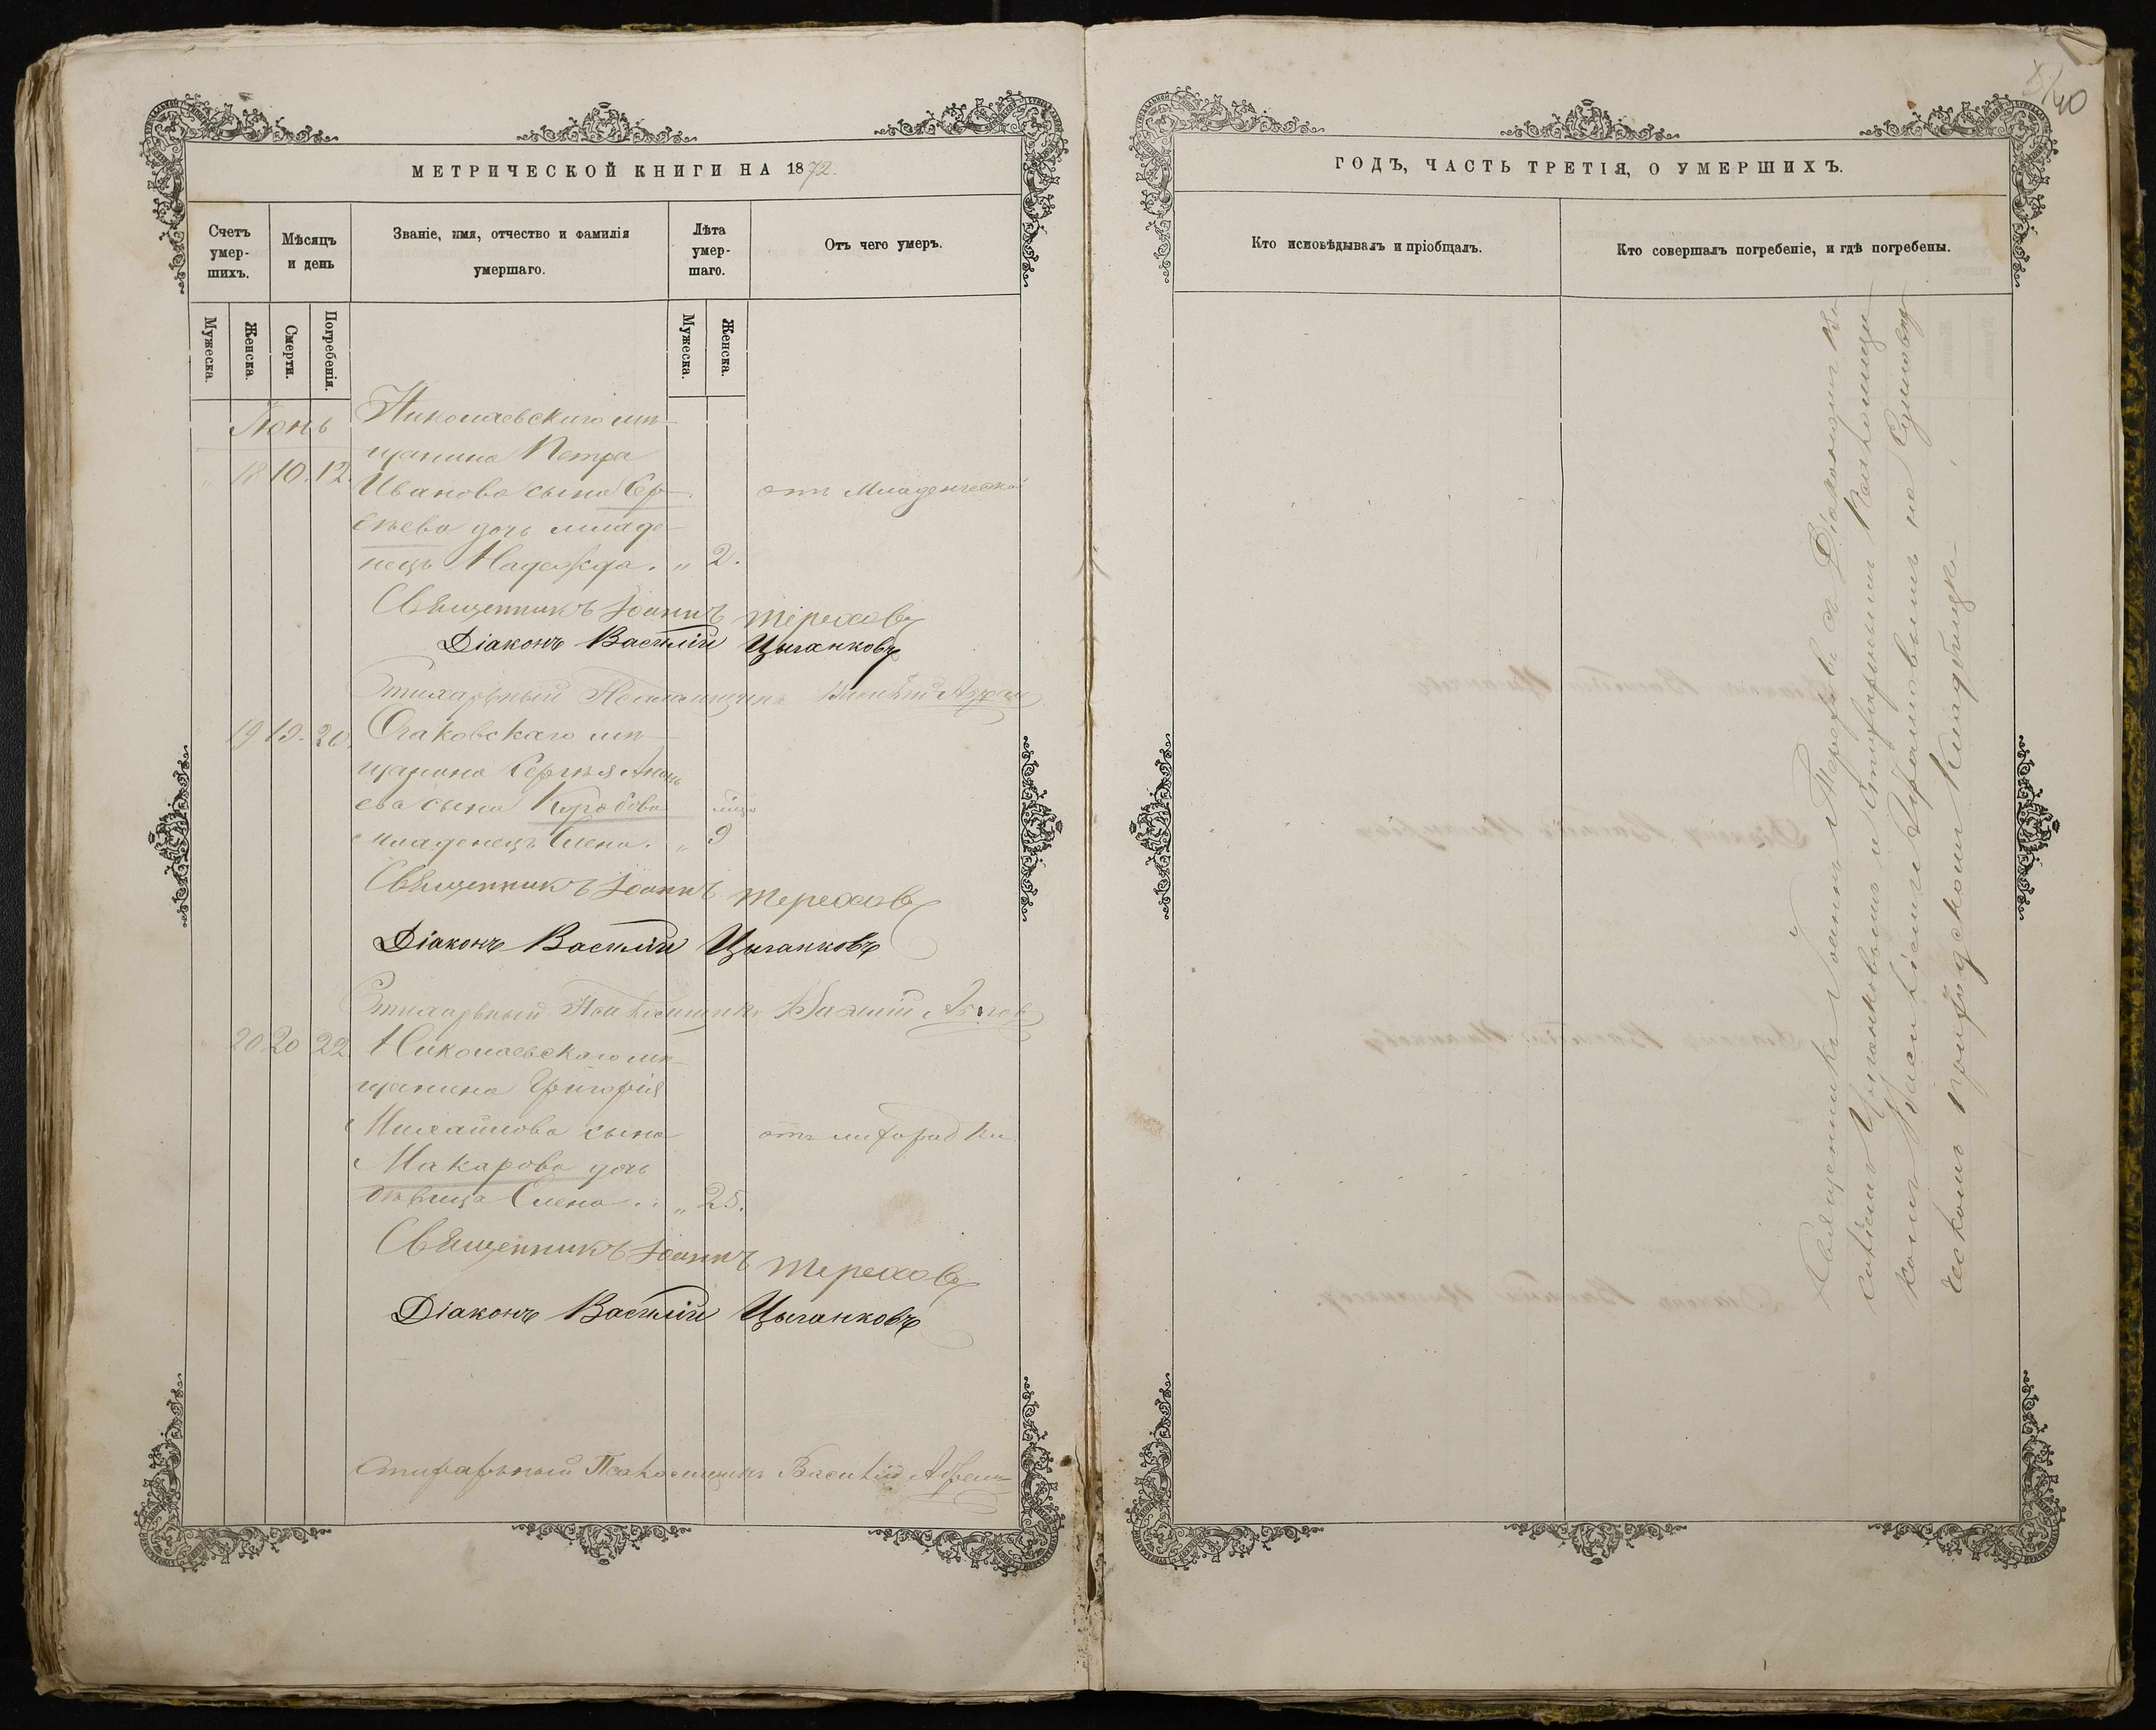 МЕТРИЧЕСКОЙ КНИГИ НА 1872.
Счетъ умершихъ.
Мѣсяцъ и день
Званіе, имя, отчество и фамилія умершаго.
Лѣта умершаго.
Отъ чего умеръ.
Мужеска.
Женска.
Смерти.
Погребенія.
Мужеска.
Женска.
Іюнь
Николаевскаго мѣ-
щанина Петра
" 18 10. 12.
Иванова сына Сер-
отъ Младенческой
гѣева дочь младе-
нецъ Надежда. " 2.
Священникъ Іоаннъ Тереховъ
Діаконъ Василій Цыганковъ
Стихарный Псаломщикъ Василій
19. 19. 20.
Очаковскаго мѣ-
щанина Сергѣя
ева сына
младенецъ Елена. " 9
Священникъ Іоаннъ Тереховъ
Діаконъ Василій Цыганковъ
Стихарный Псаломщикъ Василій
20. 20 22.
Николаевскаго мѣ-
щанина Григорія
Михайлова сына
отъ лихорадки.
Макарова дочь
дѣвица Елена. " 25.
Священникъ Іоаннъ Тереховъ
Діаконъ Василій Цыганковъ
Стихарный Псаломщикъ Василій
40
ГОДЪ, ЧАСТЬ ТРЕТІЯ, О УМЕРШИХЪ.
Кто исповѣдывалъ и пріобщалъ.
Кто совершалъ погребеніе, и гдѣ погребены.
Священникъ Іоаннъ Тереховъ съ Діакономъ Ва-
силіемъ Цыганковымъ и Стихарнымъ Псаломщи-
комъ Василіемъ на
скомъ приходскомъ кладбищѣ